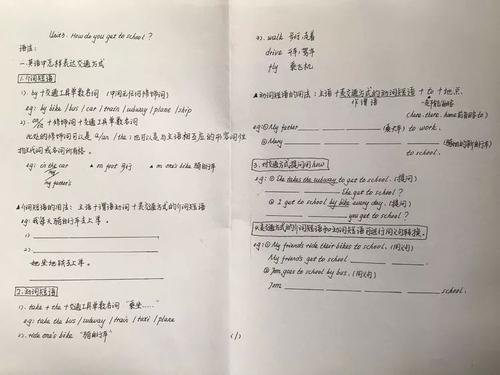 Unit3. How do you get to school ?
语法:
一.英语中怎样表达交通方式
1.介词短语
1). by + 交通工具单数名词 (中间无任何修饰词)
eg: by bike / bus / car / train / subway / plane / ship
2). on/in + 修饰词 + 交通工具单数名词
此处的修饰词可以是 a/an / the ; 也可以是与主语相互应的形容词性
物主代词或名词所有格 。
eg: in the car ▲ on foot 步行 ▲ on one's bike 骑自行车
my
my father's
▲介词短语的用法: 主语 + 谓语动词 + 表交通方式的介词短语
eg: 我每天骑自行车去上学 。
1).
2).
她坐地铁去上学 。
2.动词短语
1). take + the + 交通工具单数名词 "乘坐……"
eg: take the bus / subway / train / taxi / plane
2). ride one's bike "骑自行车"
3). walk 步行,走着
drive 开车,驾车
fly 乘飞机
▲动词短语的用法: 主语 + 表交通方式的动词短语 + to + 地点.
作谓语
(here. there. home前省略to)
eg: ① My father (乘火车) to work.
② Mary
to school.
3. 对交通方式提问用how
eg: ① She takes the subway to get to school. (提问)
she get to school?
② I get to school by bike every day. (提问)
you get to school?
4.表交通方式的介词短语和动词短语可进行同义句转换 。
eg: ① My friends ride their bikes to school. (同义句)
My friends get to school
② Jim goes to school by bus. (同义句)
Jim school.
(1)